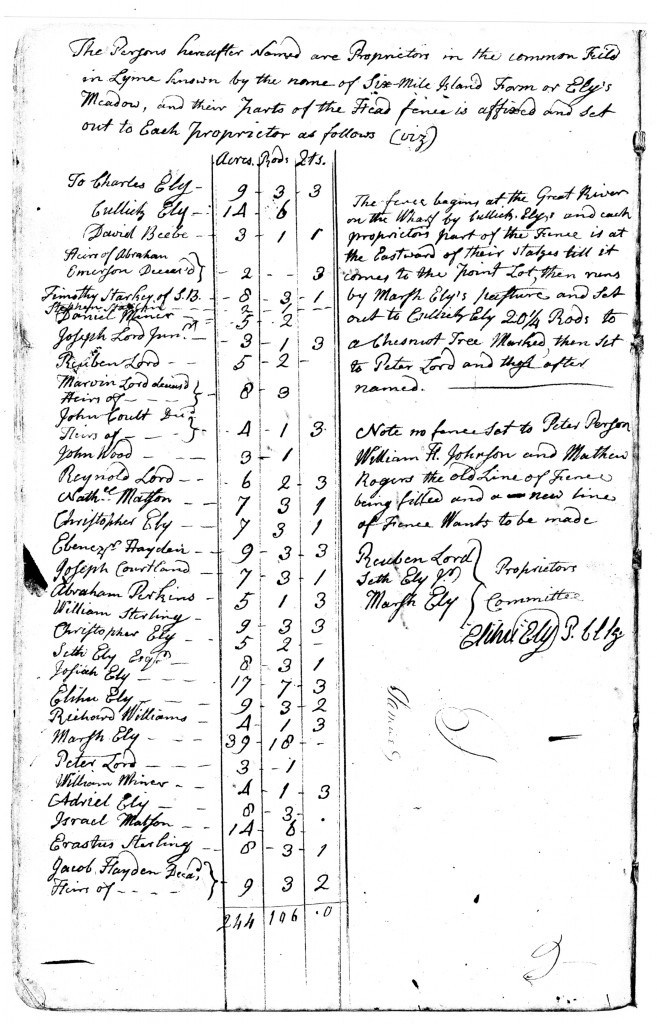 The Persons hereafter Named are Proprietors in the common Field
in Lyme known by the name of Six-Mile Island Farm or Ely's
Meadow, and their Parts of the Head fence is affixed and set
out to Each proprietor as follows (viz)
Acres. Rods Qts.
To Charles Ely - 9 - 3 - 3
Cullick Ely - - 14 - 6 -
David Beebe - 3 - 1 1
Heirs of Abraham
Emerson Deceas'd } - 2 - - - 3
Timothy Starkey of S.B. - 8 - 3 - 1
Stephen
Daniel Miner - 5 - 2
Joseph Lord Junr. - 3 - 1 3
Reuben Lord - - 5 - 2 -
Marvin Lord Deceas'd
Heirs of - - - } 8 - 3
John Coult Decd
Heirs of - - - } 4 - 1 3
John Wood - - 3 - 1
Reynold Lord - - 6 2 - 3
Nathl. Matson - - 7 3 1
Christopher Ely - 7 3 1
Ebenezr. Hayden - - 9 - 3 - 3
Joseph Courtland - 7 - 3 - 1
Abraham Perkins - 5 1 3
William Sterling - - 9 - 3 3
Christophr Ely - - 5 2 -
Seth Ely Esqr. - 8 - 3 1
Josiah Ely - - 17 7 - 3
Elihu Ely - - - 9 - 3 - 2
Richard Williams - 4 - 1 3
Marsh Ely - - 39 - 18 - -
Peter Lord - - 3 - 1
William Miner - - 4 - 1 3
Adriel Ely - - 8 3 -
Israel Matson - - 14 - 6 .
Erastus Sterling - 8 - 3 - 1
Jacob Hayden Decd.
Heirs of - - - - } - 9 3 2
244 106 .0
The fence begins at the Great River
on the Wharf by Cullick Ely's and each
proprietors part of the Fence is at
the Eastward of their Stakes till it
comes to the Point Lot then runs
by Marsh Ely's pasture and Set
out to Cullick Ely 20 1/4 Rods to
a Chesnut Tree Marked then Set
to Peter Lord and those after
named.
Note no fence Set to Peter Person
William H. Johnson and Mathew
Rogers the old Line of Fence
being filled and a new line
of Fence Wants to be made
Reuben Lord
Seth Ely Jr
Marsh Ely
} Proprietors
Committee
Elihu Ely P. Clk